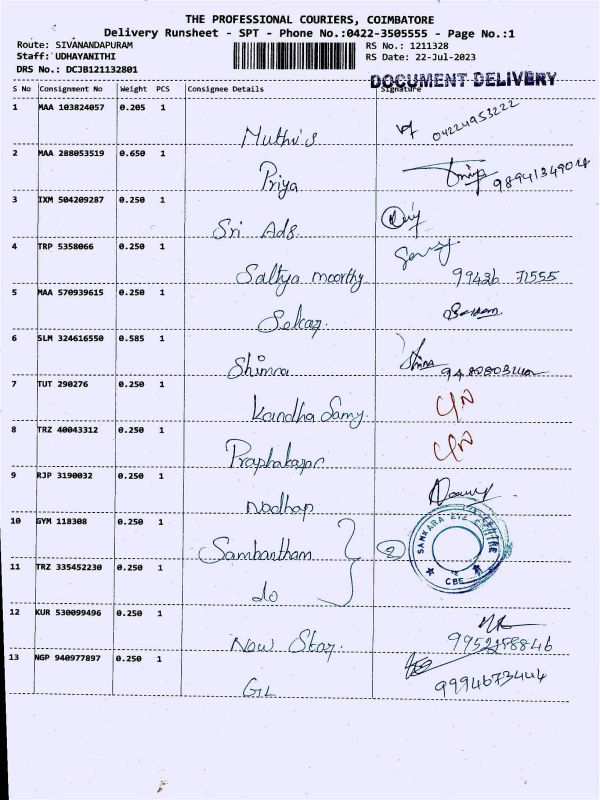 THE PROFESSIONAL COURIERS, COIMBATORE
Delivery Runsheet - SPT - Phone No.:0422-3505555 - Page No.:1
Route: SIVANANDAPURAM RS No.: 1211328
Staff: UDHAYANITHI RS Date: 22-Jul-2023
DRS No.: DCJB121132801
DOCUMENT DELIVERY
S No Consignment No Weight PCS Consignee Details Signature
1 MAA 103824057 0.205 1
Muthu's 04224953222
2 MAA 288053519 0.650 1
Priya 9894134904
3 IXM 504209287 0.250 1
Sri Ads.
4 TRP 5358066 0.250 1
Saltya moorthy 99436 71555
5 MAA 570939615 0.250 1
Sekar.
6 SLM 324616550 0.585 1
Shimra
7 TUT 290276 0.250 1
Kandha Samy.
8 TRZ 40043312 0.250 1
Praphakaran
9 RJP 3190032 0.250 1
10 GYM 118308 0.250 1
Sambantham 2 SANKARA EYE CENTRE CBE
11 TRZ 335452230 0.250 1
do
12 KUR 530099496 0.250 1
New Star. 9952258846
13 NGP 940977897 0.250 1
GIL 9994673444